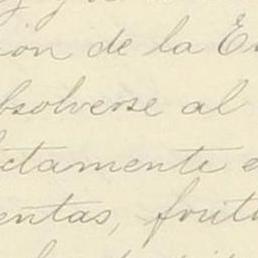 ion de la E
bsolverse al
ctamente e
entas, frut